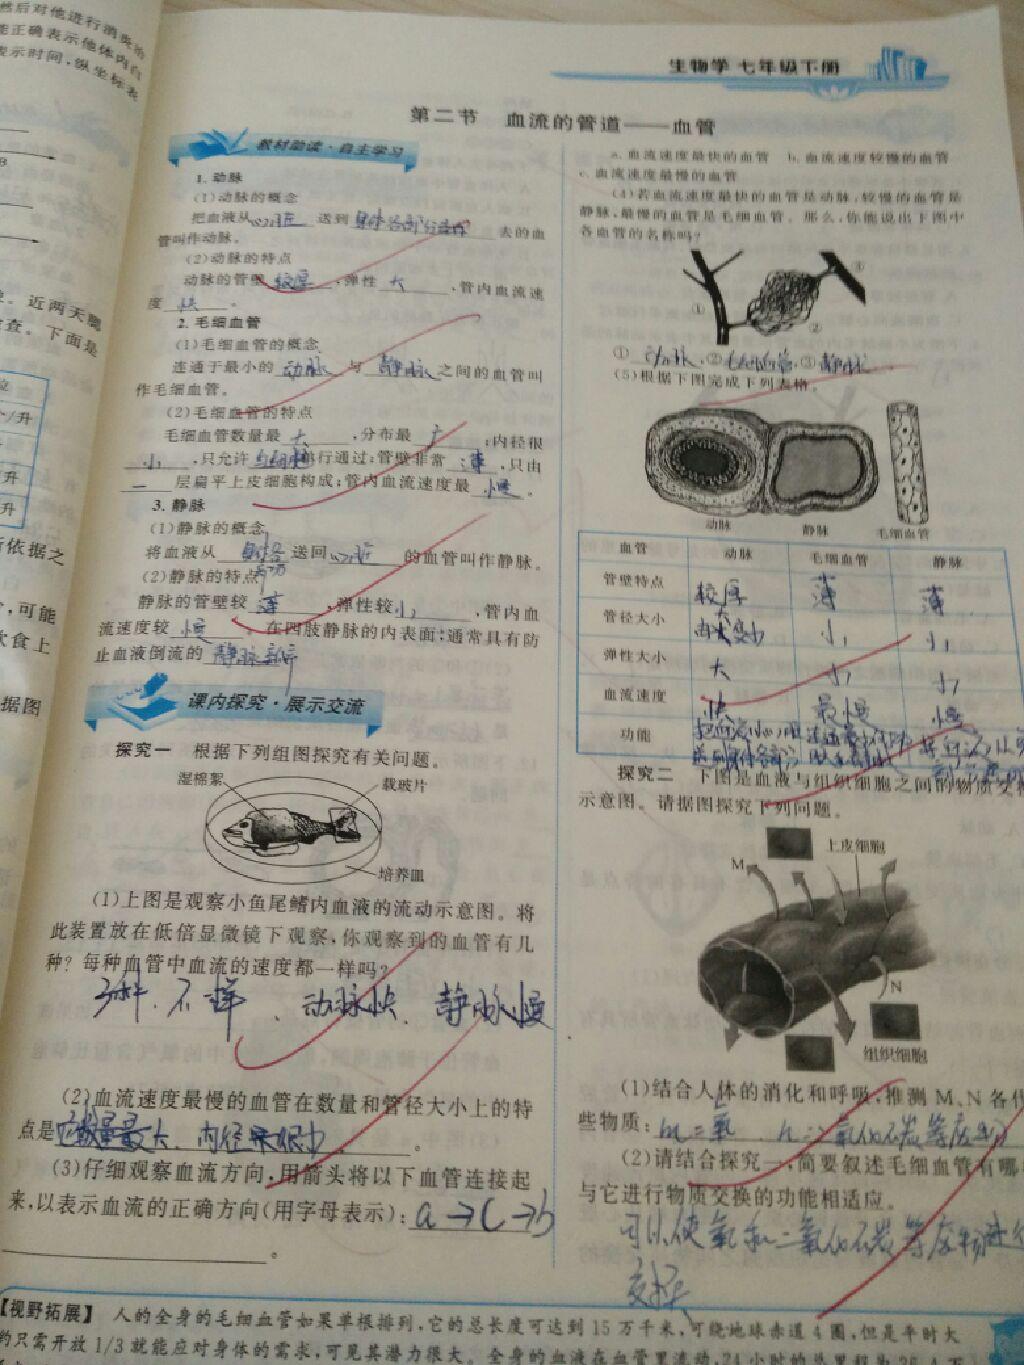 然后对他进行消炎治
能正确表示他体内白
表示时间,纵坐标表
近两天腮
查。下面是
位
个/升
升
升
所依据之
,可能
饮食上
据图
生物学 七年级下册
第二节 血流的管道——血管
教材助读·自主学习
1. 动脉
(1)动脉的概念
把血液从 心脏 送到 身体各部分 去的血
管叫作动脉。
(2)动脉的特点
动脉的管壁 较厚 ,弹性 大 ,管内血流速
度 快 。
2. 毛细血管
(1)毛细血管的概念
连通于最小的 动脉 与 静脉 之间的血管叫
作毛细血管。
(2)毛细血管的特点
毛细血管数量最 大 ,分布最 广 ;内径很
小 ,只允许 行通过;管壁非常 薄 ,只由
一 层扁平上皮细胞构成;管内血流速度最 慢 。
3. 静脉
(1)静脉的概念
将血液从 身体各部分 送回 心脏 的血管叫作静脉。
(2)静脉的特点
静脉的管壁较 薄 ,弹性较 小 ,管内血
流速度较 慢 。在四肢静脉的内表面,通常具有防
止血液倒流的 静脉瓣
课内探究·展示交流
探究一 根据下列组图探究有关问题。
湿棉絮
载玻片
培养皿
(1)上图是观察小鱼尾鳍内血液的流动示意图。将
此装置放在低倍显微镜下观察,你观察到的血管有几
种?每种血管中血流的速度都一样吗?
3种. 不一样 、动脉快、静脉慢
(2)血流速度最慢的血管在数量和管径大小上的特
点是 数量最大、内径 很小 。
(3)仔细观察血流方向,用箭头将以下血管连接起
来,以表示血流的正确方向(用字母表示): a→c→b
。
a. 血流速度最快的血管 b. 血流速度较慢的血管
c. 血流速度最慢的血管
(4)若血流速度最快的血管是动脉,较慢的血管是
静脉,最慢的血管是毛细血管。那么,你能说出下图中
各血管的名称吗?
①
②
③
① 动脉 ,② 毛细血管 ,③ 静脉 。
(5)根据下图完成下列表格。
动脉 静脉 毛细血管
血管 动脉 毛细血管 静脉
管壁特点 较厚 薄 薄
管径大小 大 小 小
弹性大小 大 小 小
血流速度 快 最慢 慢
功能 送到身体各部分
探究二 下图是血液与组织细胞之间的物质交换
示意图。请据图探究下列问题。
M
上皮细胞
N
组织细胞
(1)结合人体的消化和呼吸,推测 M、N 各代
些物质: m=氧 n=二氧化碳等废物
(2)请结合探究一,简要叙述毛细血管有哪
与它进行物质交换的功能相适应。
可以使氧和二氧化碳等废物进行
交换
【视野拓展】 人的全身的毛细血管如果单根排列,它的总长度可达到 15 万千米,可绕地球赤道 4 圈,但是平时大
约只需开放 1/3 就能应对身体的需求,可见其潜力很大。全身的血液在血管里流动,24 小时的总里程为